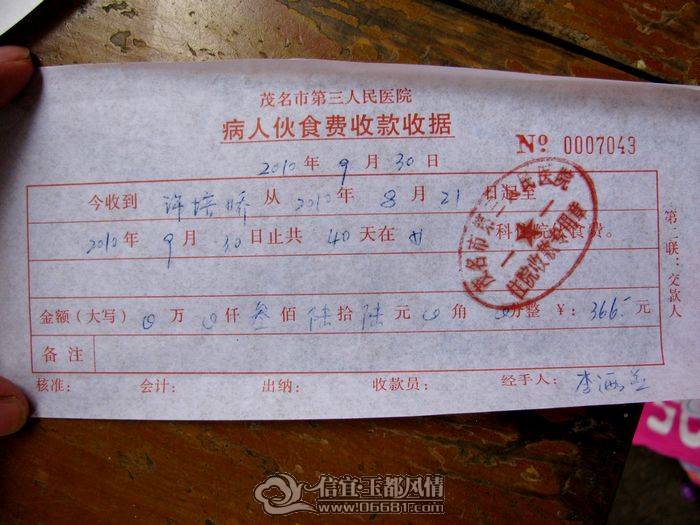 茂名市第三人民医院
病人伙食费收款收据
№ 0007043
2010年9月30日
今收到 许培娇 从2010年8月21日起至
2010年9月30日止共40天在 科住院伙食费。
金额(大写) 0万0仟叁佰陆拾陆元0角0分整 ¥:366元
备注
核准: 会计: 出纳: 收款员: 经手人:
第二联:交款人
茂名市第三人民医院
住院收款专用章
信宜·玉都风情
www.06681.com